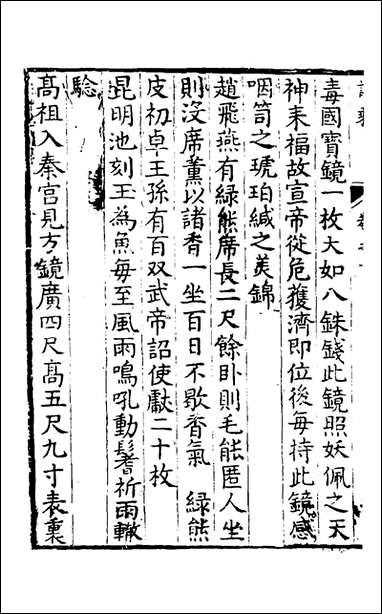 毒國寳鏡一枚大如八銖錢此鏡照妖佩之天
神来福故宣帝從危獲濟即位後每持此鏡感
咽笥之琥珀緘之美錦
趙飛燕有緑熊席長二尺餘卧則毛能匿人坐
則没席薫以諸香一坐百日不歇香氣　緑熊
皮初卓王孫有百双武帝詔使獻二十枚
昆明池刻玉為魚每至風雨鳴吼動鬐耆祈雨輙
騐
髙祖入秦宫見方鏡廣四尺髙五尺九寸表裏